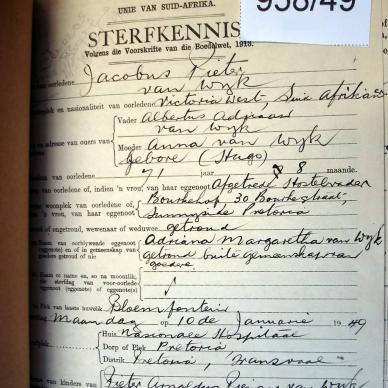 958/49
UNIE VAN SUID-AFRIKA.
STERFKENNIS
Volgens die Voorskrifte van die Boedelwet, 1913.
van oorledene Jacobus Pieter
van Wyk
en nasionaliteit van oorledene Victoria West, Suid Afrikaans
Vader Albertus Adriaan
van Wyk
en adresse van ouers van
Moeder Anna van Wyk
gebore (Hugo)
71 jaar 8 maande.
van oorledene of, indien 'n vrou, van haar eggenoot Afgetrede
woonplek van oorledene of,
'n vrou, van haar eggenoot
Bournehof, 30 Bourkestraat,
Sunnyside Pretoria
of ongetroud, wewenaar of weduwee getroud
van oorblywende eggenoot
(eggenote) en of in gemeenskap van
goedere getroud of nie
Adriana Margaretha van Wyk
getroud buite gemeenskap van
goedere
Plek van laaste huwelik Bloemfontein
Maandag op 10de Januarie 1949
Huis Nasionale Hospitaal
Dorp of Plek Pretoria
Distrik Pretoria, Transvaal
van kinders van
Pieter Arnoldus Pienaar van Wyk